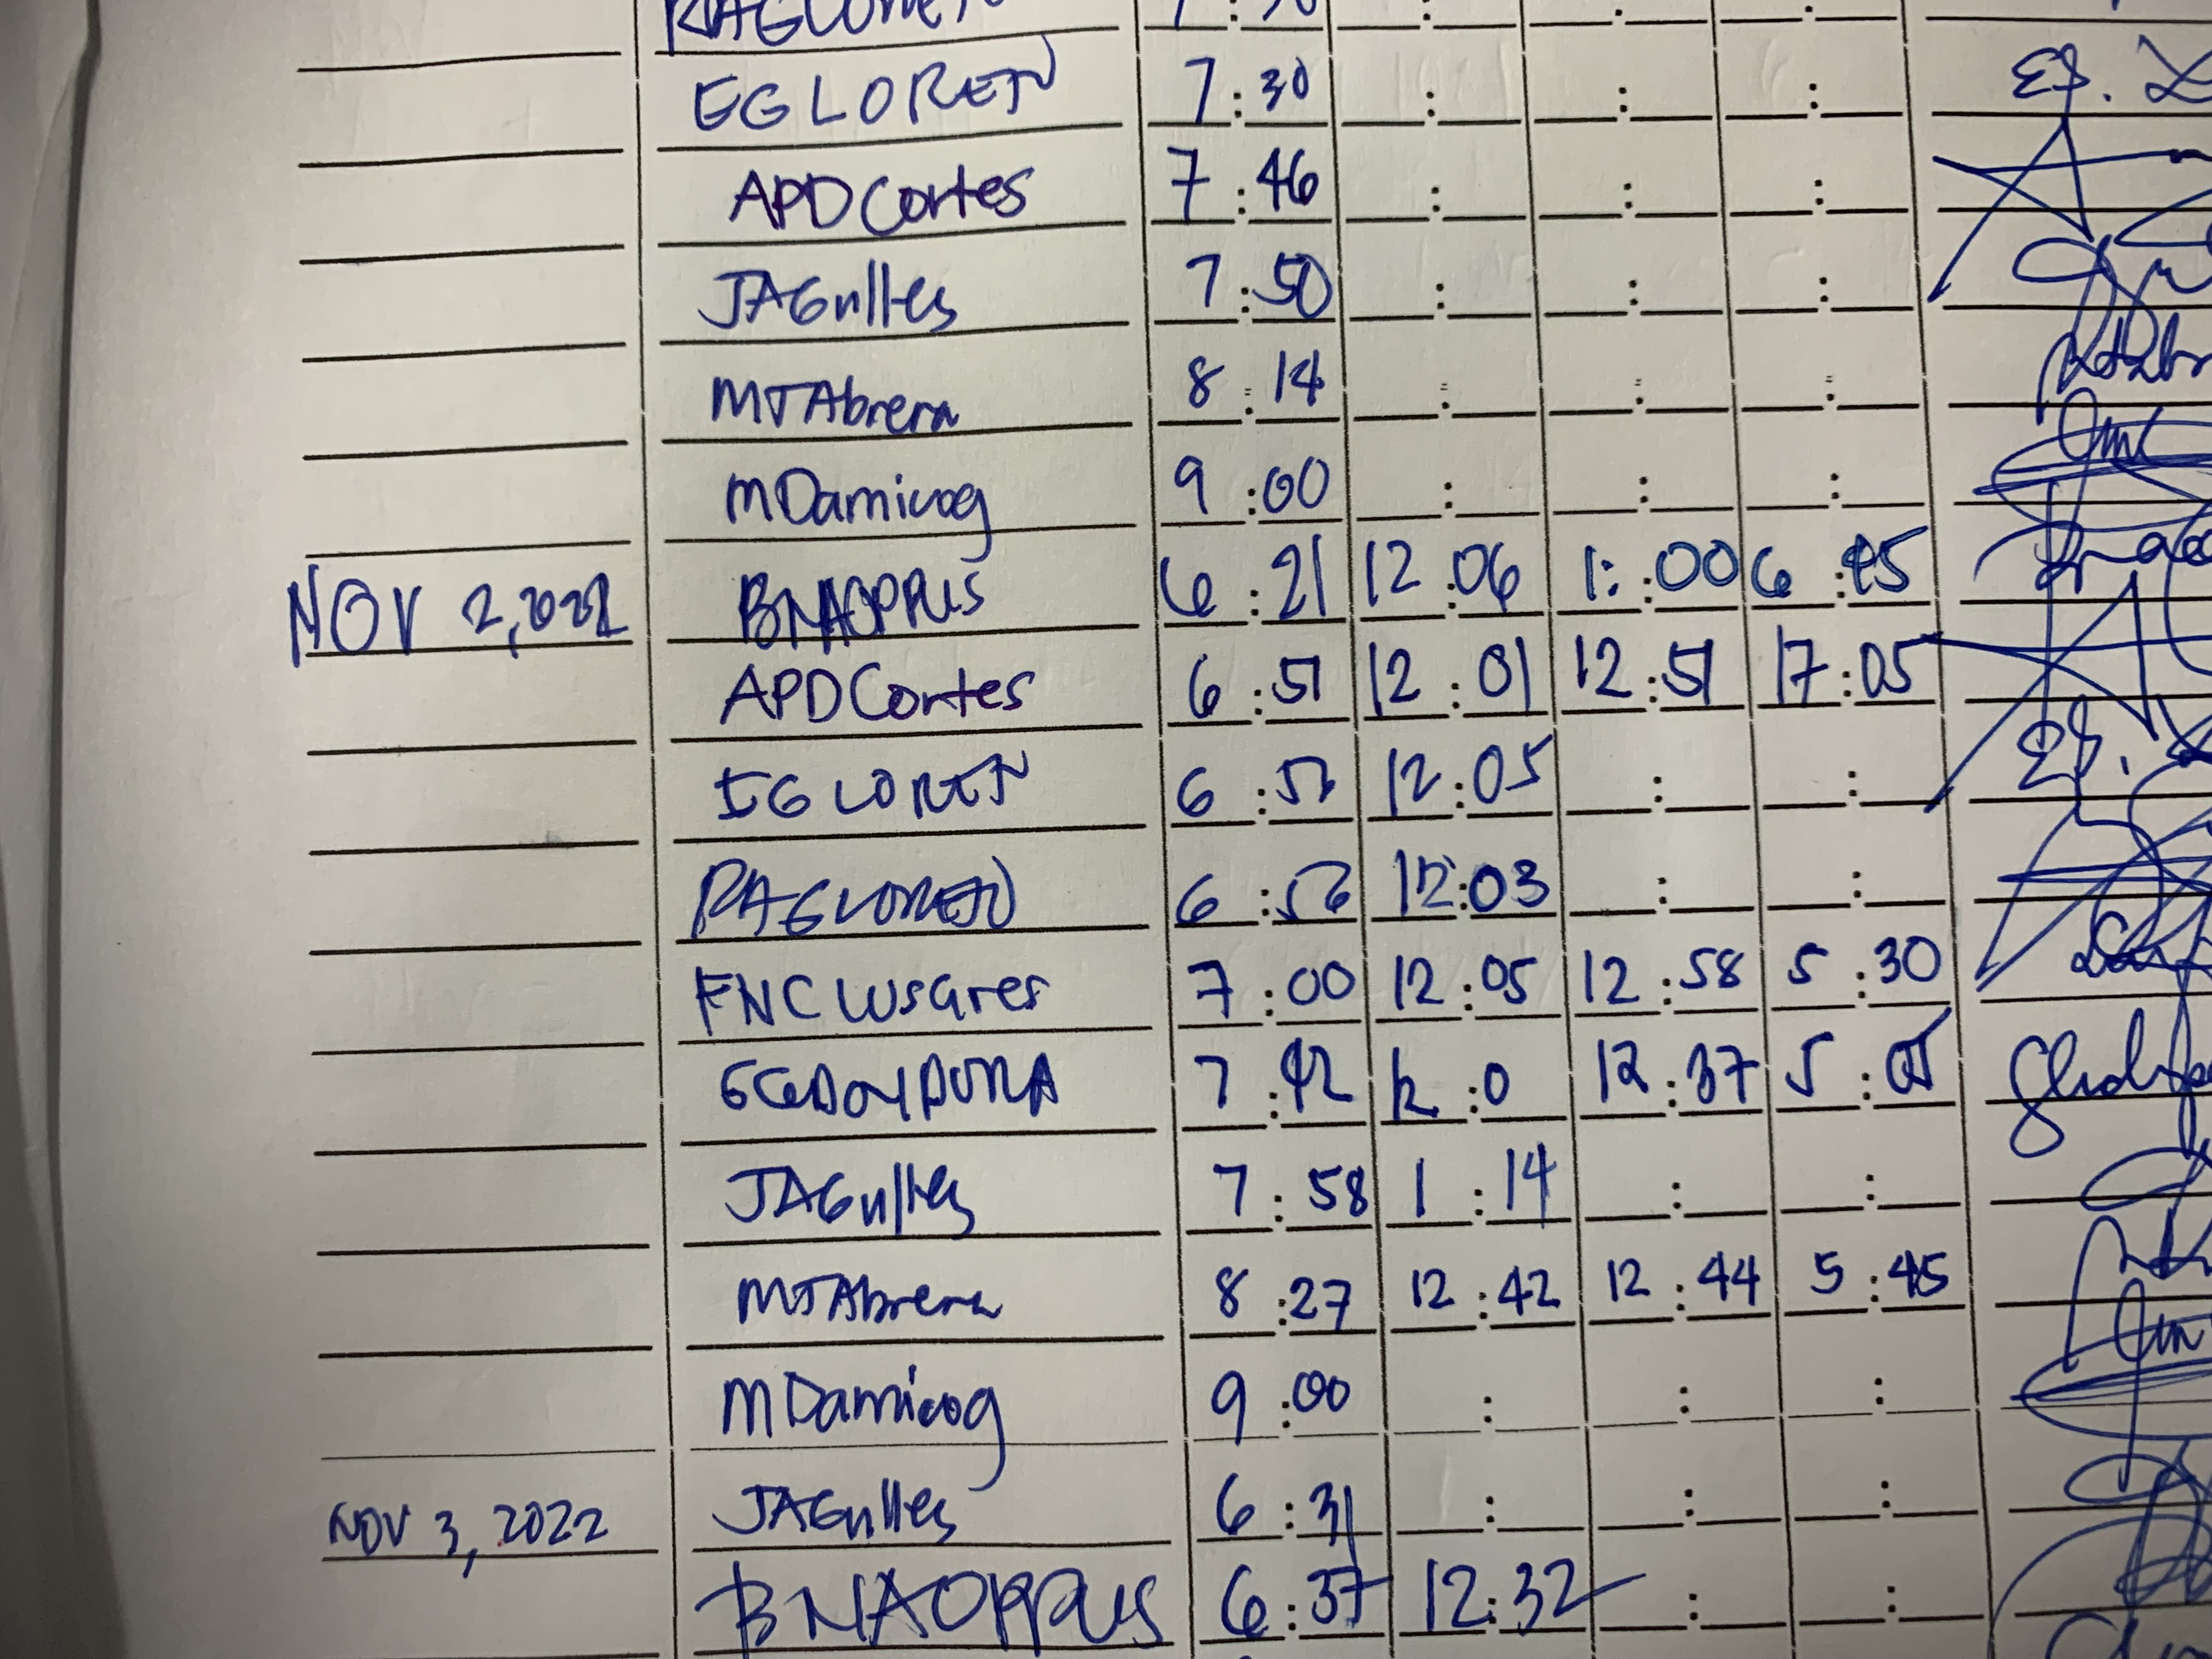 7:30
EGLOREN 7:30
APDCortes 7:46
JAGulles 7:50
MTAbrera 8:14
MDamicog 9:00
NOV 2, 2022 BNAOPPUS 6:21 12:06 1:00 6:45
APDCortes 6:51 12:01 12:51 17:05
EGLOREN 12:05
RAGLOREN 6:56 12:03
FNCLUSares 7:00 12:05 12:58 5:30
7:42 12:0 12:37 5:05
JAGulles 7:58 1:14
MTAbrera 8:27 12:42 12:44 5:45
MDamicog 9:00
NOV 3, 2022 JAGulles 6:31
BNAOPPUS 6:37 12:32